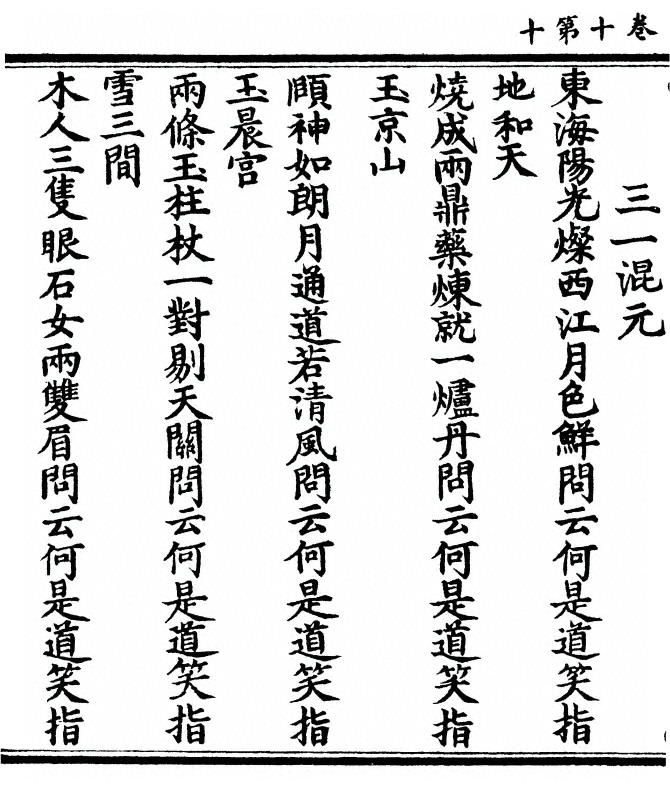 卷十第十
三一混元
東海陽光燦西江月色鮮問云何是道笑指
地和天
燒成兩鼎藥煉就一爐丹問云何是道笑指
玉京山
頤神如朗月通道若清風問云何是道笑指
玉晨宮
兩條玉柱杖一對剔天關問云何是道笑指
雪三間
木人三隻眼石女兩雙眉問云何是道笑指